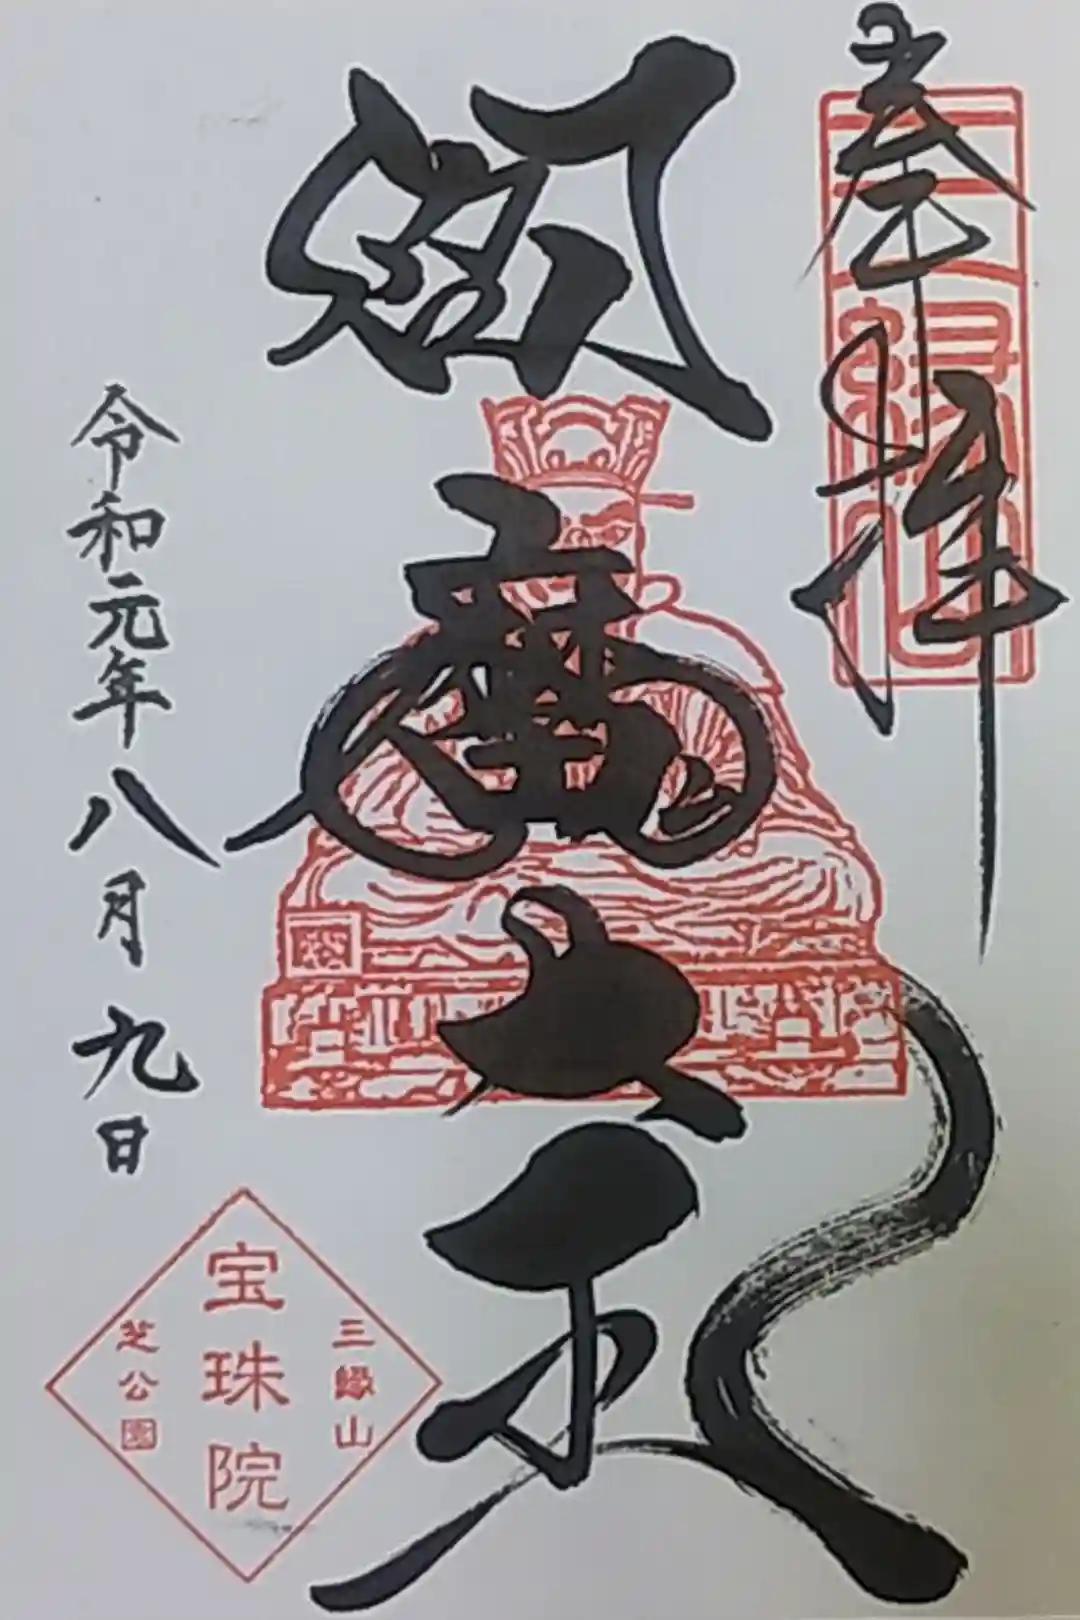 奉拝
閻魔大王
令和元年八月九日
三縁山
宝珠院
芝公園